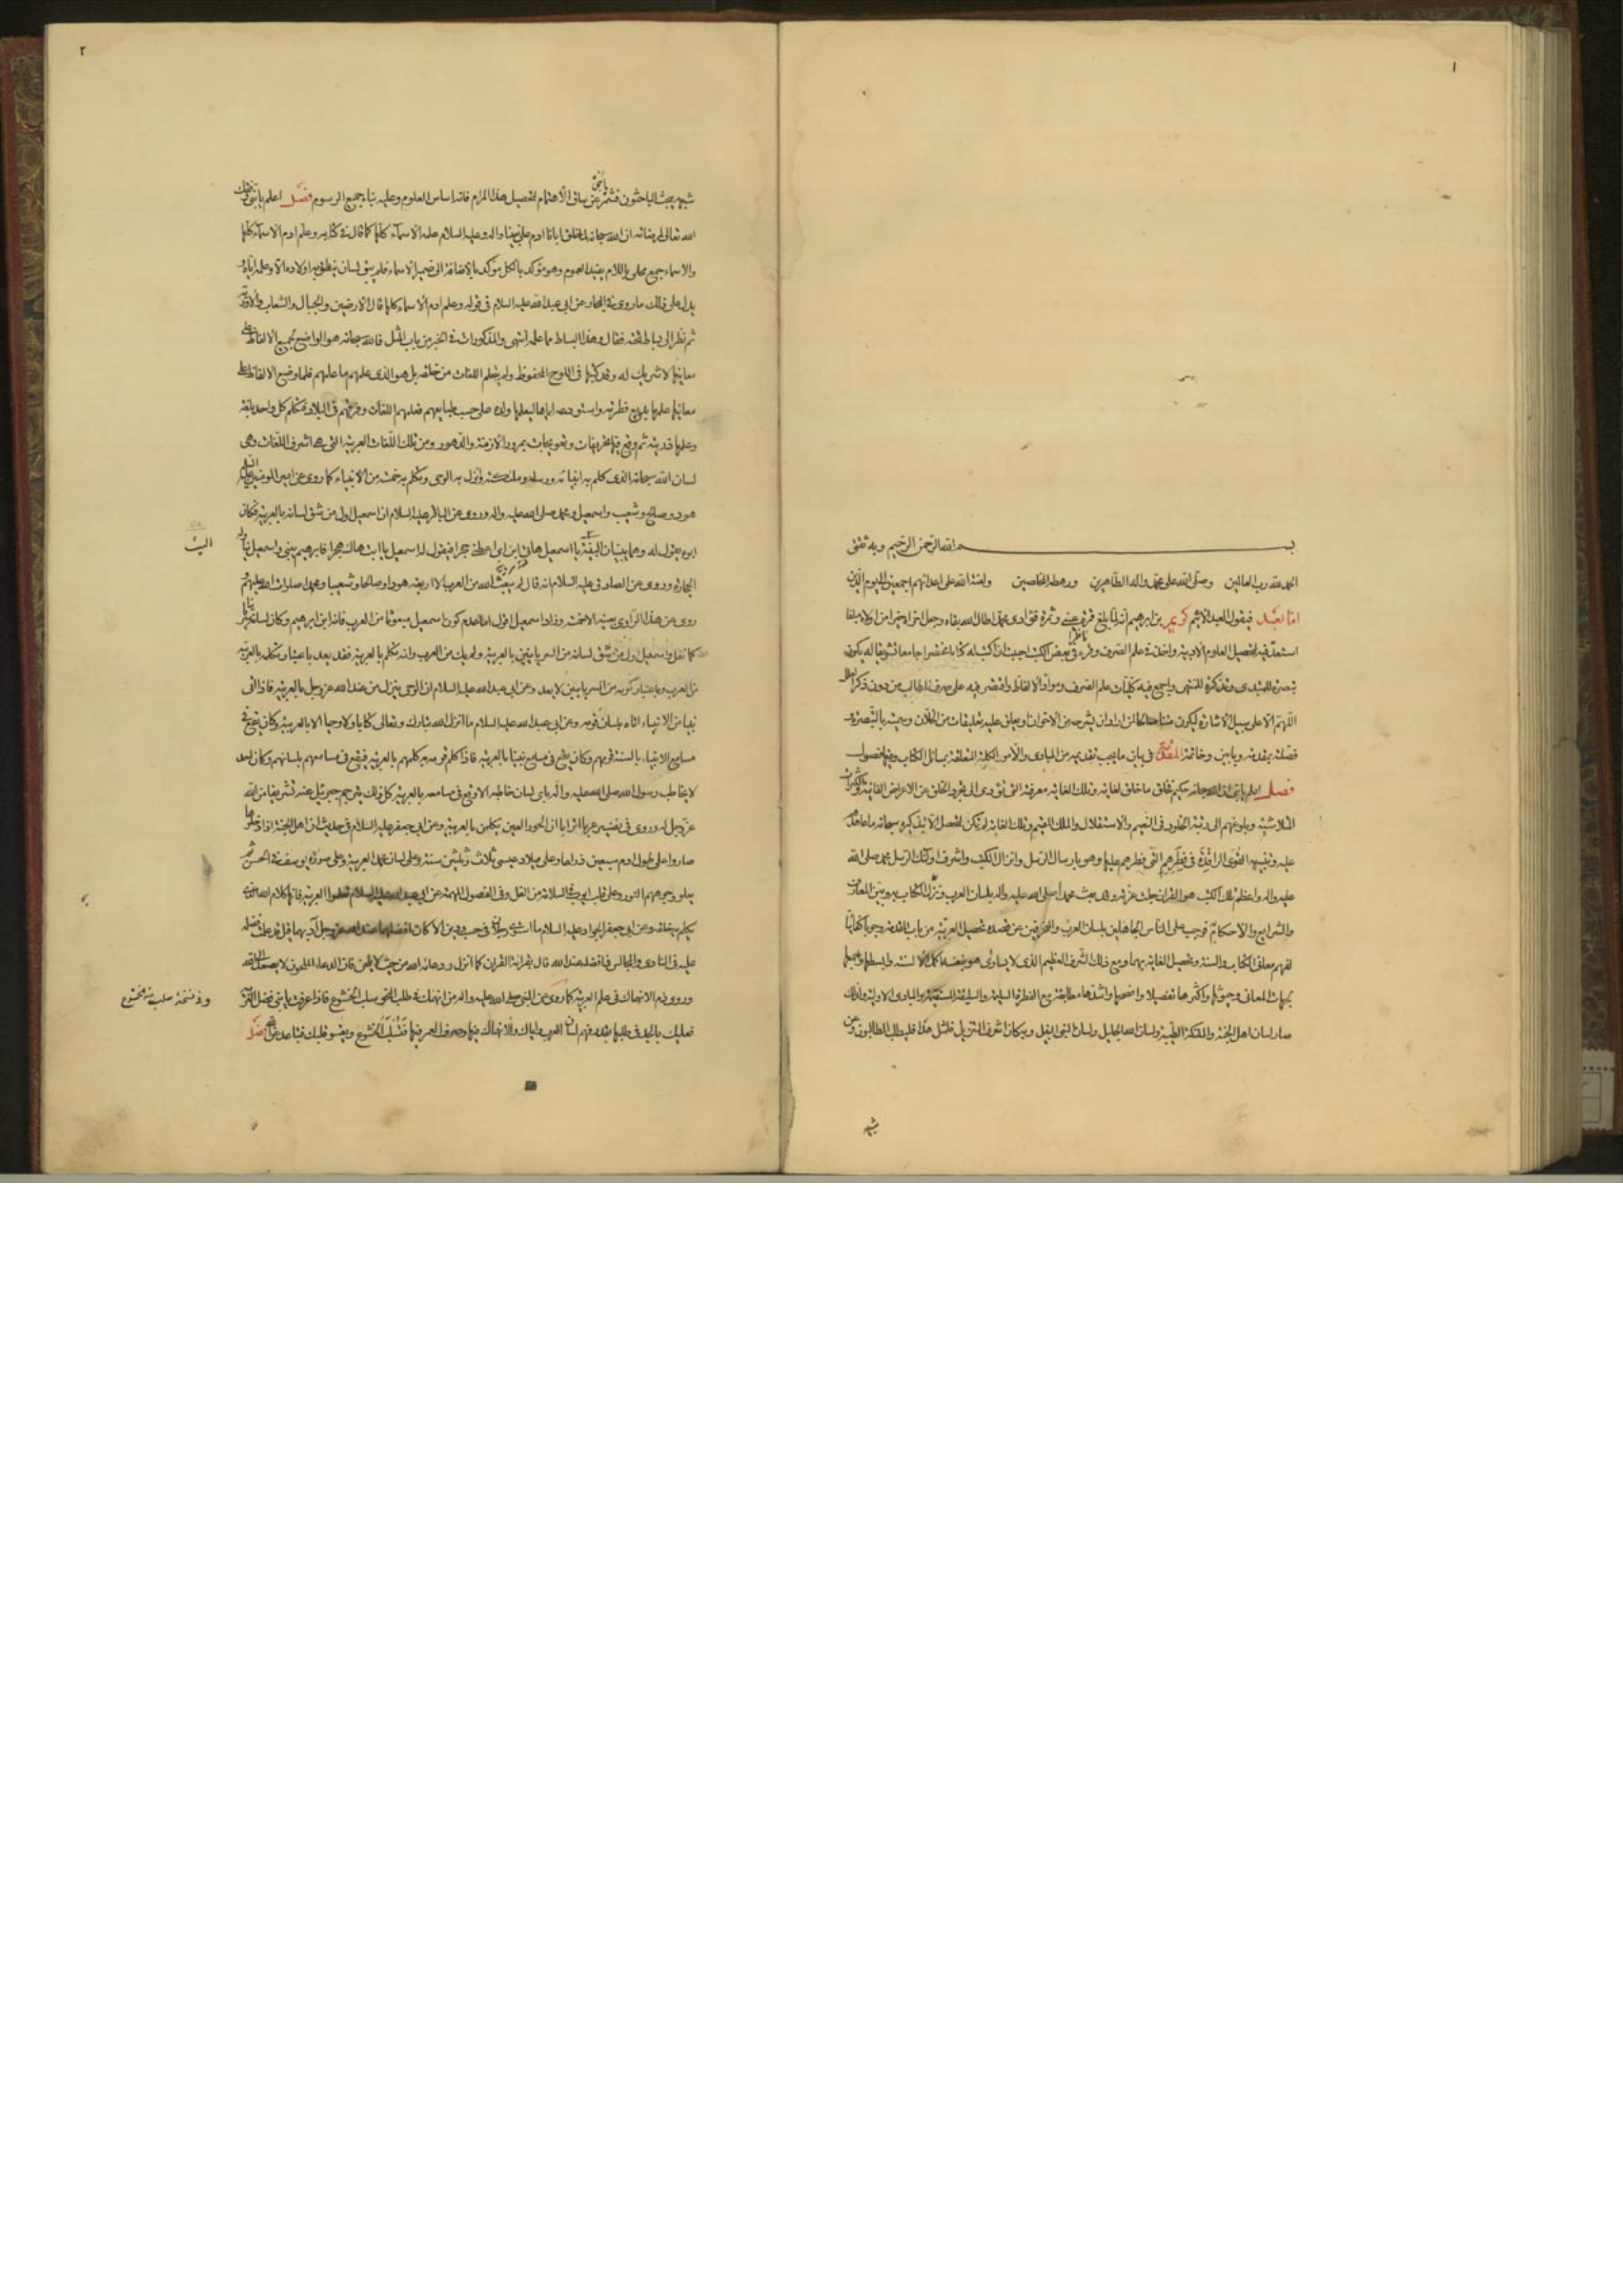 ١
بسم الله الرحمن الرحيم وبه ثقتى
الحمد لله رب العالمين وصلى الله على محمد واله الطاهرين ورهطه المخلصين ولعنة الله على اعدائهم اجمعين الى يوم الدين
اما بعد فيقول العبد الاثيم كريم بن ابرهيم انه لما بلغ قرة عينى وثمرة فؤادى محمد اطال الله بقاه وجعل اخرته خيرا من اولاه مبلغا
استعد فيه لتحصيل العلوم الادبية واخذ فى علم الصرف وقرء فى بعض الكتب احببت ان اكتب له كتابا مختصرا جامعا لشوقا له يكون
تبصرة للمبتدى وتذكرة للمنتهى واجمع فيه كليات علم الصرف ومواد الالفاظ واقتصر فيه على صرف المطالب من دون ذكر
اللهم الا على سبيل الاشارة ليكون لمن اراد ان يشرحه من الاخوان او يعلق عليه تعليقات من الخلان وسميته بالتبصرة
فصلته بمقدمة وبابين وخاتمة المقدمة فى بيان ما يجب تقديمه من المبادى والامور الكلية المتعلقة بمسائل الكتاب وفيها فصول
فصل اعلم يا بنى ان الله سبحانه حكيم خلق ما خلق لغاية وتلك الغاية معرفته التى تؤدى الى تجرد الخلق عن الاعراض الفانية
المتلاشية وبلوغهم الى رتبة الخلود فى النعيم والاستقلال والملك العظيم وتلك الغاية لم تكن لتحصل الا بتذكيره سبحانه ما عاهد
عليه وتنبيه القوى الراقدة فى فطرهم التى فطرهم عليها وهو بارسال الرسل وانزال الكتب واشرف اولئك الرسل محمد صلى الله
عليه واله واعظم تلك الكتب هو القران حيث عزيز وقد بعث محمد صلى الله عليه واله بلسان العرب ونزل الكتاب به وبين المعارف
والشرايع والاحكام به فوجب على الناس الجاهلين بلسان العرب والمنحرفين عن قصده تحصيل العربية من باب المقدمة وجوبا كفائيا
لفهم معانى الكتاب والسنة وتحصيل الغاية بهما ومع ذلك لشرف العظيم الذى لا يساوى هو بنفسه اكمل الالسنة وابسطها
بجهات المعانى وحيوثها واكثرها تفصيلا وافصحها واشدها مطابقة مع الفطرة السليمة والسليقة المستقيمة والمبادى الاولية ولذلك
صار لسان اهل الجنة والملئكة الطيبة ولسان الله الجليل ولسان النبى النبيل وبمكان اشرف التنزيل فلمثل هذا فليطلب الطالبون وعن
شبهه
٢
شبهه يبحث الباحثون فشمر يا بنى عن ساق الاهتمام لتحصيل هذا المرام فانه اساس العلوم وعليه بناء جميع الرسوم فصل اعلم يا بنى وفقك
الله تعالى لمرضاته ان الله سبحانه لما خلق ابانا ادم على نبينا واله وعليه السلام علمه الاسماء كلها كما قال فى كتابه وعلم ادم الاسماء كلها
والاسماء جمع محلى باللام يفيد العموم وهو مؤكد بالكل مؤكد بالاضافة الى ضمير الاسماء فلم يبق لسان ينطق به اولاده الا وعلمه اياه و
يدل على ذلك ما روى فى البحار عن ابى عبد الله عليه السلام فى قوله وعلم ادم الاسماء كلها قال الارضين والجبال والشعاب والاودية
ثم نظر الى بساط تحته فقال وهذا البساط مما علمه انتهى والمذكورات فى الخبر من باب المثل فالله سبحانه هو الواضع لجميع الالفاظ على
معانيها لا شريك له وقد كتبها فى اللوح المحفوظ ولم يتعلم اللغات من خلقه بل هو الذى علمهم ما علمهم فلما وضع الالفاظ على
معانيها علمها بديع فطرته واستودعه اياها ليعلمها ولده على حسب طبايعهم فعلمهم اللغات وفرقهم فى البلاد فتكلم كل واحد بلغة
وعلمها ذريته ثم وقع فيها تحريفات وتعويجات بمرور الازمنة والدهور ومن تلك اللغات العربية التى هى اشرف اللغات وهى
لسان الله سبحانه الذى كلم به انبيائه ورسله وملئكته وانزل به الوحى وتكلم به خمسة من الانبياء كما روى عن امير المؤمنين عليه السلم
هود وصالح وشعيب واسمعيل ومحمد صلى الله عليه واله وروى عن الباقر عليه السلام ان اسمعيل اول من شق لسانه بالعربية فكان
ابوه يقول له وهما يبنيان البنية يا اسمعيل هابى ابن اى اعطنى حجرا فيقول له اسمعيل يا ابت هاك حجرا فابرهيم يبنى واسمعيل يناوله
البيت
الحجارة وروى عن الصادق عليه السلام انه قال لم يبعث الله من العرب الا اربعة هودا وصالحا وشعيبا ومحمدا صلوات الله عليهم
روى عن هذا الراوى بعينه الخمسة وزاد اسمعيل اقول اما لعدم كون اسمعيل مبعوثا من العرب فانه ابن ابرهيم وكان لسانه
كما نقل واسمعيل اول من شق لسانه من السريانيين بالعربية ولم يك من العرب وانه تكلم بالعربية فقد يعد باعتبار تكلمه بالعربية
من العرب وباعتبار كونه من السريانيين لا يعد وعن ابى عبد الله عليه السلام ان الوحى ينزل من عند الله عز وجل بالعربية فاذا اتى
نبيا من الانبياء اتاه بلسان قومه وعن ابى عبد الله عليه السلام ما انزل الله تبارك وتعالى كتابا ولا وحيا الا بالعربية وكان يقع فى
مسامع الانبياء بالسنة قومهم وكان يقع فى مسامع نبينا بالعربية فاذا كلم قومه به كلمهم بالعربية فيقع فى مسامعهم بلسانهم وكان احد
لا يخاطب رسول الله صلى الله عليه واله باى لسان خاطبه الا وقع فى مسامعه بالعربية كل ذلك يترجم جبرئيل عنه تشريفا من الله
عز وجل له وروى فى تفسير عربا اترابا ان الحور العين يتكلمن بالعربية وعن ابى جعفر عليه السلام فى حديث ان اهل الجنة اذا دخلوها
صاروا على طول ادم سبعين ذراعا وعلى ميلاد عيسى ثلاث وثلثين سنة وعلى لسان محمد العربية وعلى صورة يوسف فى الحسن ثم
يعلو وجوههم النور وعلى قلب ايوب فى السلامة من الغل وفى الفصول المهمة عن ابى عبد الله عليه السلام تعلموا العربية فانها كلام الله الذى
يكلم به خلقه وعن ابى جعفر الجواد عليه السلام ما استوى رجلان فى حسب ودين الا كان افضلهما عند الله عز وجل ادبهما قيل قد علمت فضله
عليه فى النادى والمجالس فما فضله عند الله قال بقرائة القران كما انزل ودعائه الله من حيث لا يلحن فان الدعاء الملحون لا يصعد الى الله
وروى ذم الانهماك فى علم العربية كما روى عن النبى صلى الله عليه واله من انهمك فى طلب النحو سلب الخشوع فاذا عرفت يا بنى فضل العربية
وفى نسخة سلب عنه الخشوع
فعليك بالجد فى طلبها بقدر فهم لسان العرب واياك والانهماك فيها وصرف العمر فيها فتسلب الخشوع ويقسو قلبك فتباعد عن فصل